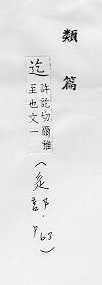 類篇
迄
許訖切爾雅
至也文一
(辵部·P63)